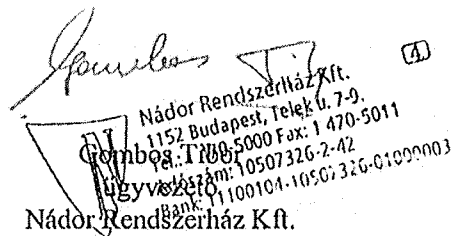 Gombos Tibor
④
Nádor Rendszerház Kft.
1152 Budapest, Telek u. 7-9.
Tel.: 1 470-5000 Fax: 1 470-5011
Adószám: 10507326-2-42
Bank: 11100104-10507326-01000003
Gombos Tibor
ügyvezető
Nádor Rendszerház Kft.